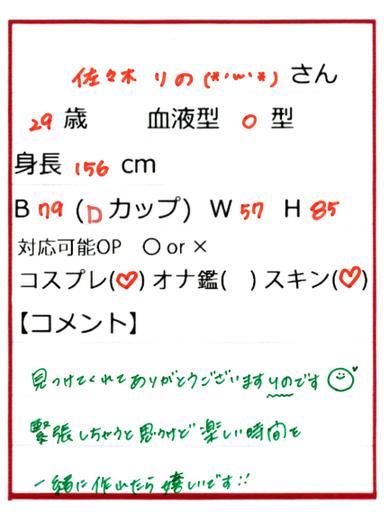 佐々木 りの(*'ω'*) さん
29 歳 血液型 O 型
身長 156 cm
B 79 (D カップ) W 57 H 85
対応可能OP 〇 or ×
コスプレ(♡) オナ鑑( ) スキン(♡)
【コメント】
見つけてくれてありがとうございます りのです
緊張しちゃうと思うけど 楽しい時間を
一緒に作れたら嬉しいです!!